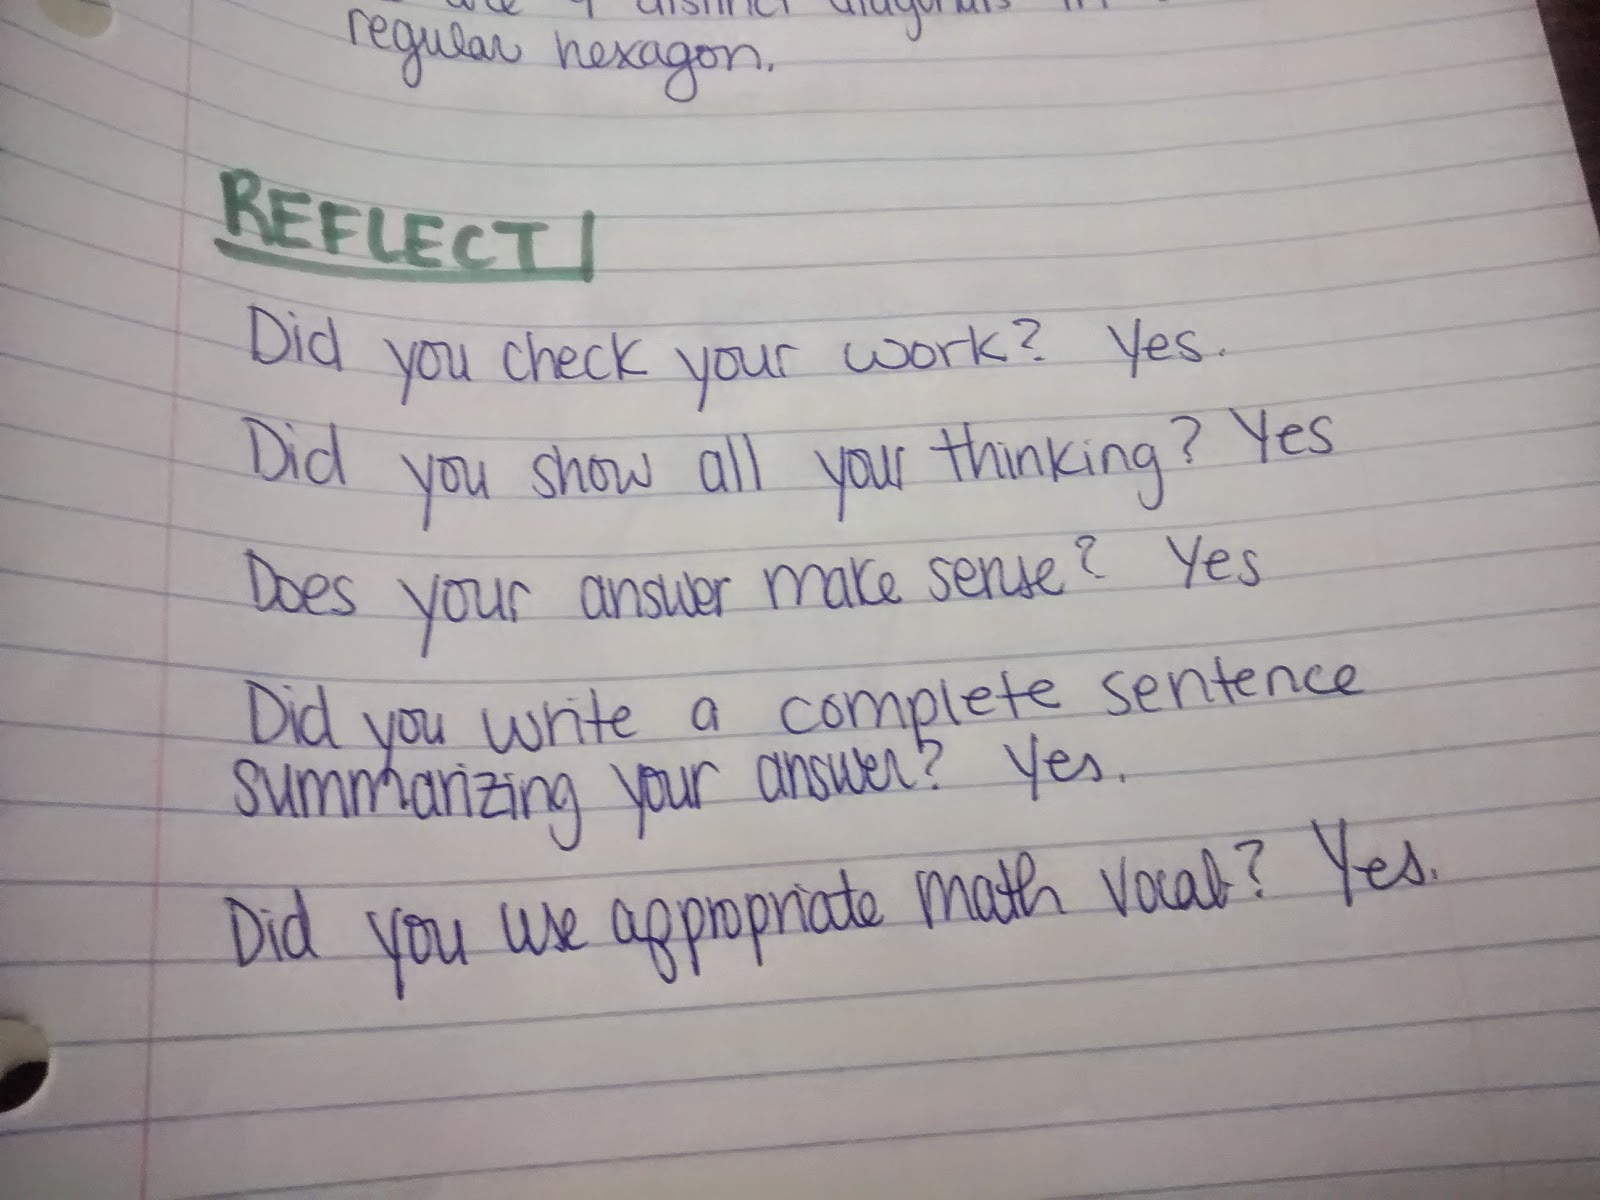 are 9 distinct diagonals in
regular hexagon.
REFLECT
Did you check your work? Yes.
Did you show all your thinking? Yes
Does your answer make sense? Yes
Did you write a complete sentence
summarizing your answer? Yes.
Did you use appropriate math vocab? Yes.